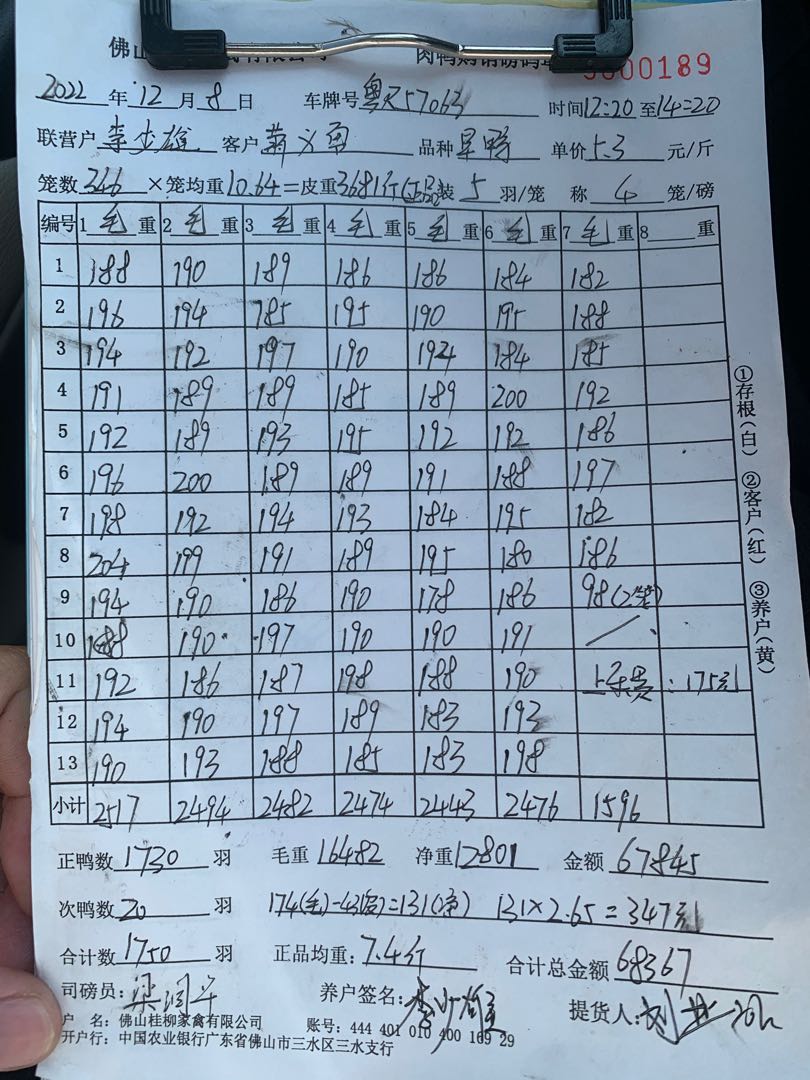 佛山 肉鸭购销磅码单 0000189
2022 年 12 月 8 日 车牌号 粤 57063 时间 12:20 至 14:20
联营户 李 雄 客户 品种 旱鸭 单价 5.3 元/斤
笼数 346 ×笼均重 10.64 =皮重 3681斤 装 5 羽/笼 称 4 笼/磅
编号 1 毛 重 2 毛 重 3 毛 重 4 毛 重 5 毛 重 6 毛 重 7 毛 重 8 重
1 188 190 189 186 186 184 182
2 196 194 185 195 190 195 188
3 194 192 197 190 192 184 185
4 191 189 189 185 189 200 192
5 192 189 193 195 192 192 186
6 196 200 189 189 191 188 197
7 198 192 194 193 184 195 182
8 204 199 191 189 195 180 186
9 194 190 186 190 178 186 98(2笼)
10 188 190 197 190 190 191
11 192 186 187 198 188 190 上车费:175元
12 194 190 197 189 183 193
13 190 193 188 185 183 198
小计 2517 2494 2482 2474 2443 2476 1596
①存根(白) ②客户(红) ③养户(黄)
正鸭数 1730 羽 毛重 16482 净重 12801 金额 67845
次鸭数 20 羽 174(毛)-43(皮)=131(净) 131×2.65=347元
合计数 1750 羽 正品均重: 7.4斤 合计总金额 68367
司磅员: 梁润 养户签名: 李 雄 提货人: 刘
户 名: 佛山桂柳家禽有限公司 账号: 444 401 010 400 169 29
开户行: 中国农业银行广东省佛山市三水区三水支行